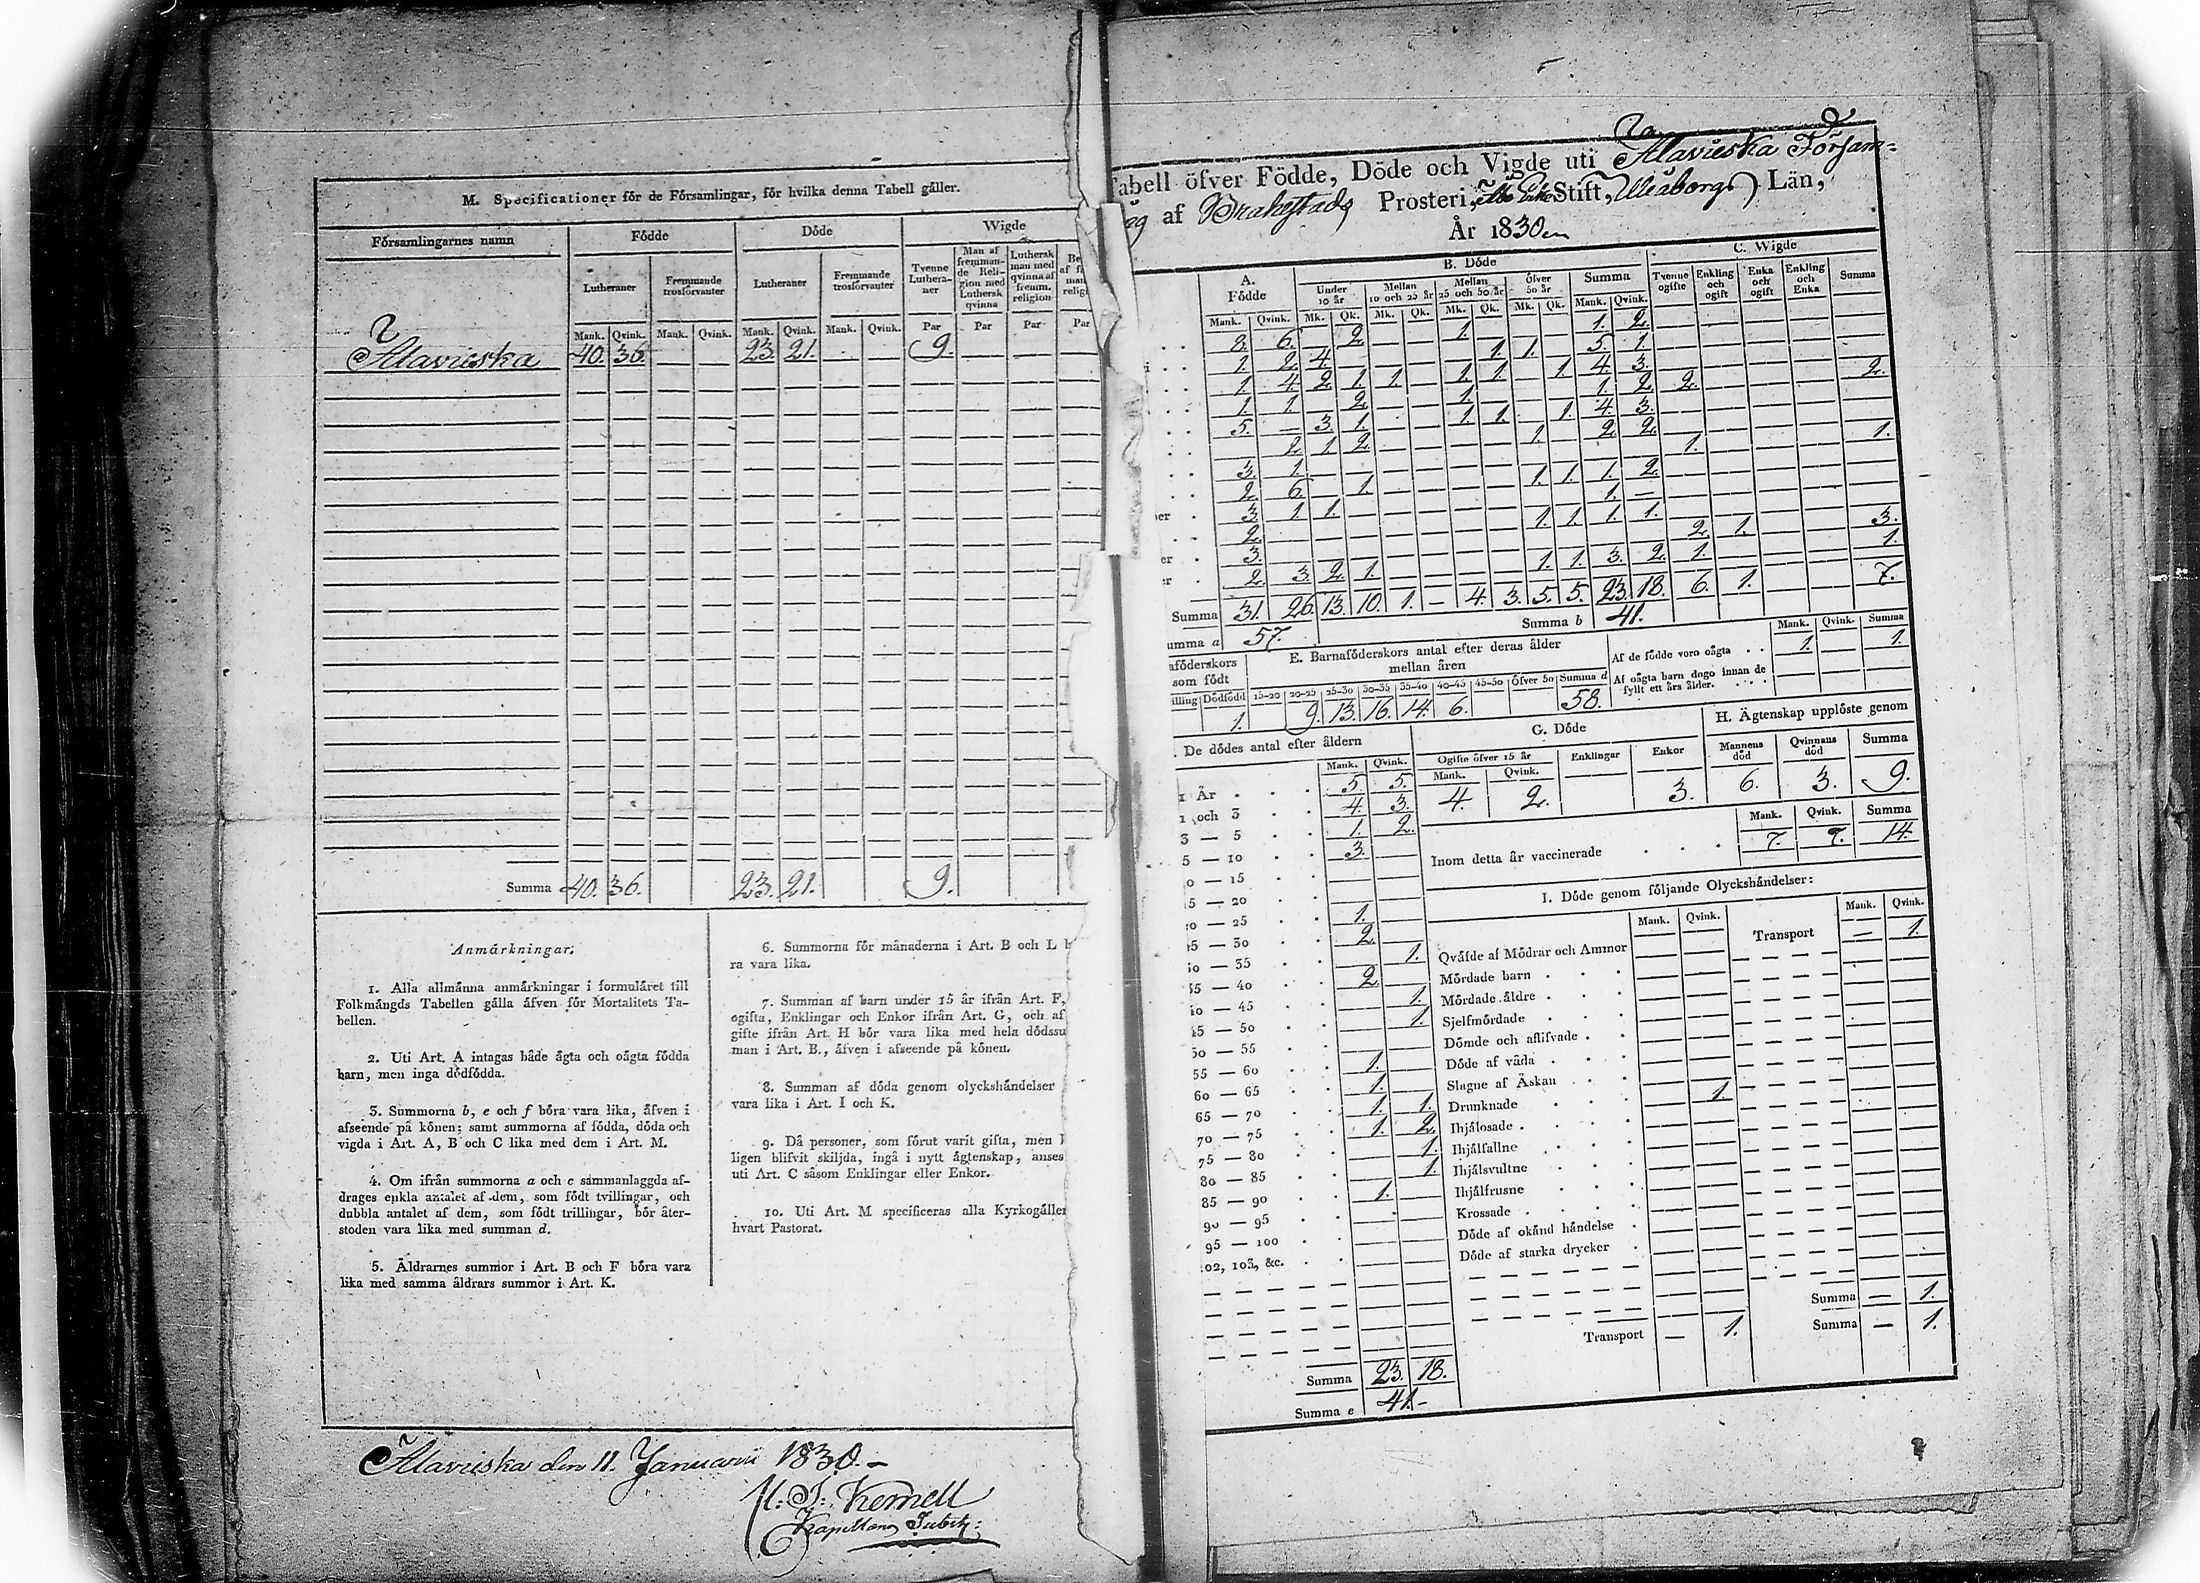 M. Specificationer för de Församlingar, för hvilka denna Tabell gäller.
Församlingarnes namn Födde Döde Wigde
Lutheraner Fremmande trosförvanter Lutheraner Fremmande trosförvanter Tvenne Lutheraner Man af fremmande Religion med Luthersk qvinna Luthersk man med qvinna af fremm. religion
Mank. Qvink. Mank. Qvink. Mank. Qvink. Mank. Qvink. Par Par Par Par
Alavieska 40. 36. — — 23. 21. — — 9. — — —
Summa 40. 36. 23. 21. 9.
Anmärkningar.
1. Alla allmänna anmärkningar i formuläret till
Folkmängds Tabellen gälla äfven för Mortalitets Ta-
bellen.
2. Uti Art. A intagas både ägta och oägta födda
barn, men inga dödfödda.
3. Summorna b, e och f böra vara lika, äfven i
afseende på könen; samt summorna af födda, döda och
vigda i Art. A, B och C lika med dem i Art. M.
4. Om ifrån summorna a och c sammanlaggda af-
drages enkla antalet af dem, som födt tvillingar, och
dubbla antalet af dem, som födt trillingar, bör åter-
stoden vara lika med summan d.
5. Åldrarnes summor i Art. B och F böra vara
lika med samma åldrars summor i Art. K.
6. Summorna för månaderna i Art. B och L b
ra vara lika.
7. Summan af barn under 15 år ifrån Art. F,
ogifta, Enklingar och Enkor ifrån Art. G, och af
gifte ifrån Art. H bör vara lika med hela dödssu
man i Art. B., äfven i afseende på könen.
8. Summan af döda genom olyckshändelser
vara lika i Art. I och K.
9. Då personer, som förut varit gifta, men l
ligen blifvit skiljda, ingå i nytt ägtenskap, anses
uti Art. C såsom Enklingar eller Enkor.
10. Uti Art. M specificeras alla Kyrkogäller
hvart Pastorat.
Alavieska den 11. Januarii 1830.—
Kemell
Kapellan
Tabell öfver Födde, Döde och Vigde uti Alavieska Försam=
af Brahestads Prosteri, Åbo Stift, Uleåborgs Län,
År 1830
A. Födde B. Döde C. Wigde
Under 10 år Mellan 10 och 25 år Mellan 25 och 50 år Öfver 50 år Summa Tvenne ogifte Enkling och ogift Enka och ogift Enkling och Enka Summa
Mank. Qvink. Mk. Qk. Mk. Qk. Mk. Qk. Mk. Qk. Mank. Qvink.
8. 6. 2. 1. 1. 2.
1. 2. 4. 1. 1. 5. 1.
1. 4. 2. 1. 1. 1. 1. 1. 4. 3. 2. 2.
1. 1. 2. 1. 1. 2.
5. — 3. 1. 1. 1. 1. 4. 3.
2. 1. 2. 1. 2. 2. 1. 1.
3. 1. 1. 1. 1. 2.
2. 6. 1. 1. —
ber 3. 1. 1. 1. 1. 1. 1.
2. 2. 1. 3.
er 3. 1. 1. 3. 2. 1. 1.
er 2. 3. 2. 1.
Summa 31. 26. 13. 10. 1. — 4. 3. 5. 5. 23. 18. 6. 1. 7.
umma a 57. Summa b 41.
aföderskors som födt E. Barnaföderskors antal efter deras ålder mellan åren
illing Dödfödd 15-20 20-25 25-30 30-35 35-40 40-45 45-50 Öfver 50 Summa d
1. 9. 13. 16. 14. 6. 58.
Mank. Qvink. Summa
Af de födde voro oägta . . 1. 1.
Af oägta barn dogo innan de fyllt ett års ålder.
De dödes antal efter åldern
Mank. Qvink.
1 År 5. 5.
1 och 3 4. 3.
3 — 5 1. 2.
5 — 10 3.
0 — 15
5 — 20
20 — 25 1.
25 — 30 2.
30 — 35 1.
35 — 40 2.
40 — 45 1.
45 — 50 1.
50 — 55
55 — 60 1.
60 — 65 1.
65 — 70 1. 1.
70 — 75 1. 2.
75 — 80 1.
80 — 85 1.
85 — 90 1.
90 — 95
95 — 100
102, 103, &c.
Summa 23. 18.
Summa e 41.-
G. Döde
Ogifte öfver 15 år Enklingar Enkor
Mank. Qvink.
4. 2. 3.
H. Ägtenskap upplöste genom
Mannens död Qvinnans död Summa
6. 3. 9.
Mank. Qvink. Summa
Inom detta år vaccinerade 7. 7. 14.
I. Döde genom följande Olyckshändelser:
Mank. Qvink. Mank. Qvink.
Transport — 1.
Qväfde af Mödrar och Ammor
Mördade barn
Mördade äldre
Sjelfmördade
Dömde och aflifvade
Döde af våda
Slagne af Åskan
Drunknade 1.
Ihjälosade
Ihjälfallne
Ihjälsvultne
Ihjälfrusne
Krossade
Döde af okänd händelse
Döde af starka drycker
Summa — 1.
Transport — 1. Summa — 1.